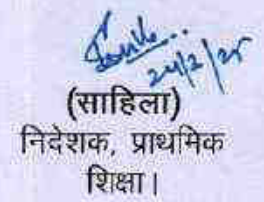 24/2/25
(साहिला)
निदेशक, प्राथमिक
शिक्षा।